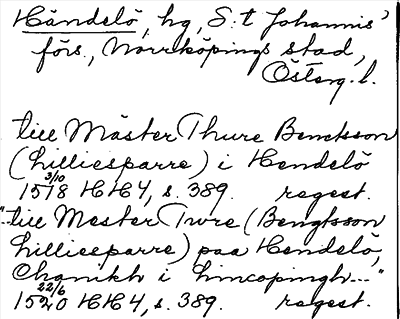 Händelö, hg, S:t Johannis'
förs., Norrköpings stad,
Österg. l.
till Mäster Thure Benctsson
(Lilliesparre) i Hendelö
3/10
1518 HH4, s. 389. regest.
"till Mester Twre (Bengtsson
Lilliesparre) paa Hendelö,
Chanikh i Lincopingh..."
22/6
1520 HH4, s. 389. regest.